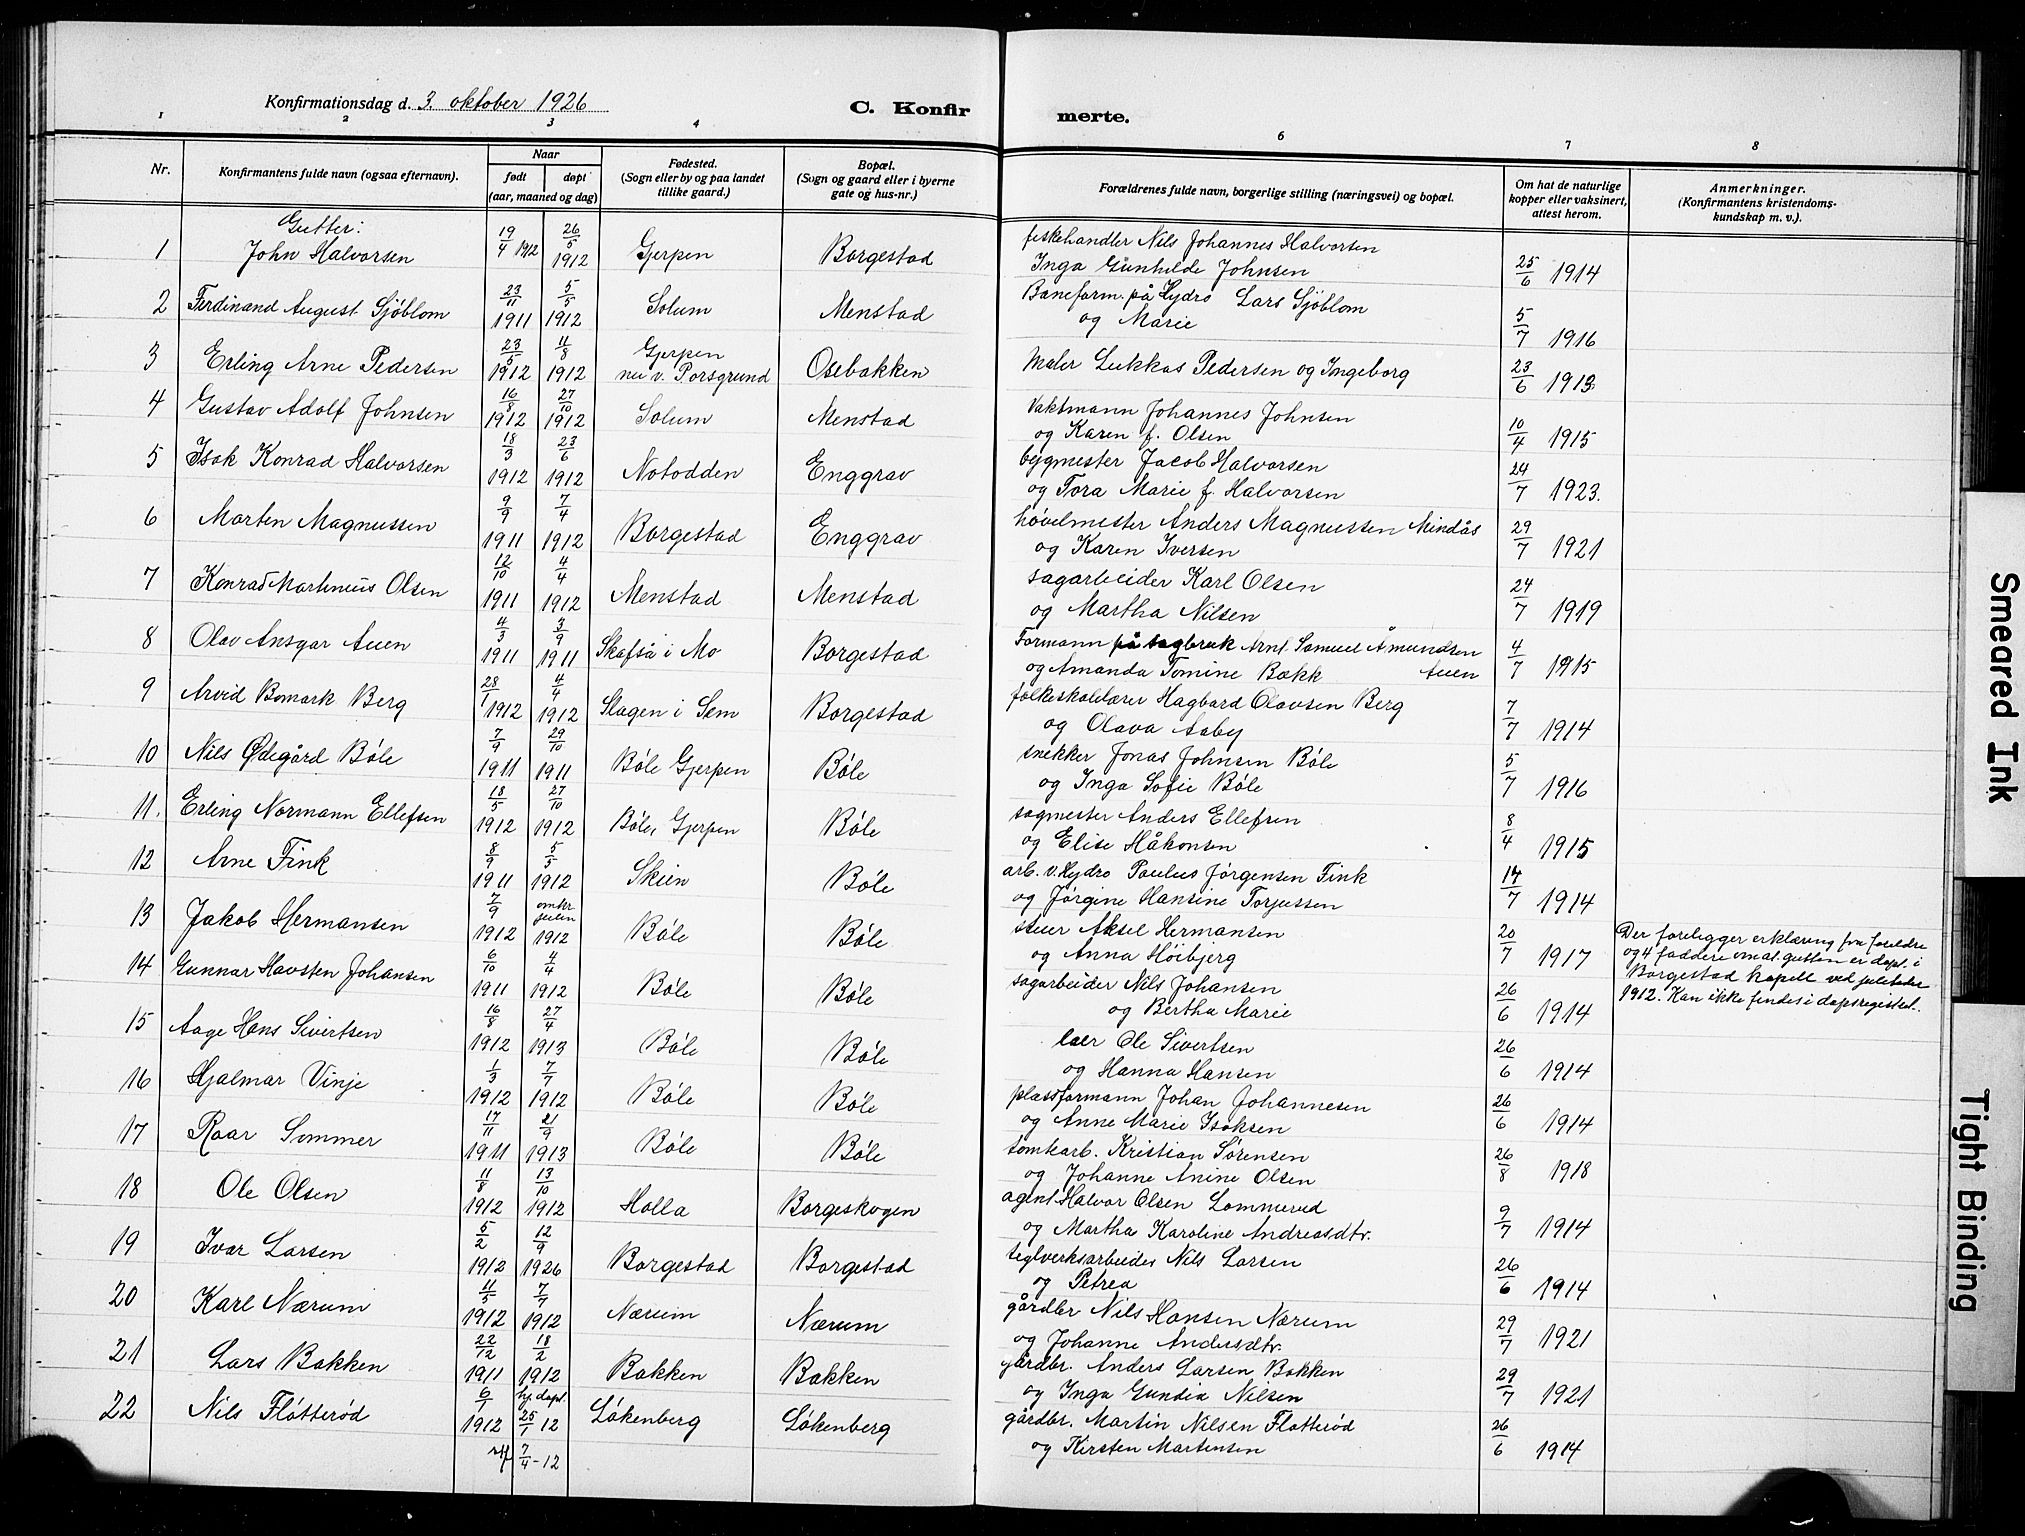 Konfirmationsdag d. 3. oktober 1926
C. Konfir merte.
1 2 3 4 6 7 8
Nr. Konfirmantens fulde navn (ogsaa efternavn). Naar født døpt (aar, maaned og dag) Fødested. (Sogn eller by og paa landet tillike gaard.) Bopæl. (Sogn og gaard eller i byerne gate og hus-nr.) Forældrenes fulde navn, borgerlige stilling (næringsvei) og bopæl. Om hat de naturlige kopper eller vaksinert, attest herom. Anmerkninger. (Konfirmantens kristendoms-kundskap m. v.).
Gutter:
1 John Halvorsen 19/4 1912 26/5 1912 Gjerpen Borgestad fiskehandler Nils Johannes Halvorsen
Inga Gunhilde Johnsen 25/6 1914
2 Ferdinand August Sjöblom 23/11 1911 5/5 1912 Solum Menstad Baneform. på Hydro Lars Sjöblom
og Marie 5/7 1916
3 Erling Arne Pedersen 23/5 1912 11/8 1912 Gjerpen nu v. Porsgrund Osebakken Maler Lukkas Pedersen og Ingeborg 23/6 1913
4 Gustav Adolf Johnsen 16/8 1912 27/10 1912 Solum Menstad Vaktmann Johannes Johnsen
og Karen f. Olsen 10/4 1915
5 Isak Konrad Halvorsen 18/3 1912 23/6 1912 Notodden Enggrav bygmester Jacob Halvorsen
og Tora Marie f. Halvorsen 24/7 1923.
6 Morten Magnussen 9/9 1911 7/4 1912 Borgestad Enggrav høvelmester Anders Magnussen Mindås
og Karen Iversen 29/7 1921
7 Konrad Martinius Olsen 12/10 1911 4/4 1912 Menstad Menstad sagarbeider Karl Olsen
og Martha Nilsen 24/7 1919
8 Olav Ansgar Auen 4/3 1911 3/9 1911 Skafså i Mo Borgestad Formann på sagbruk Arnt Samuel Åmundsen
og Amanda Tomine Bækk Auen 4/7 1915
9 Arvid Bomark Berg 28/1 1912 4/4 1912 Slagen i Sem Borgestad folkeskolelærer Hagbard Olavsen Berg
og Olava Aaby 7/7 1914
10 Nils Ødegård Bøle 7/9 1911 29/10 1911 Bøle Gjerpen Bøle snekker Jonas Johnsen Bøle
og Inga Sofie Bøle 5/7 1916
11. Erling Normann Ellefsen 18/5 1912 27/10 1912 Bøle, Gjerpen Bøle sagmester Anders Ellefsen
og Elise Håkonsen 8/4 1915
12 Arne Fink 8/9 1911 5/3 1912 Skien Bøle arb. v. Hydro Paulus Jørgensen Fink
og Jørgine Hansine Torjussen 17/7 1914
13 Jakob Hermansen 7/9 1912 omkr. julen 1912 Bøle Bøle stuer Aksel Hermansen
og Anna Høibjerg 20/7 1917 Der foreligger erklæring fra foreldre og 4 faddere om at gutten er døpt i Borgestad kapell ved juletider 1912. Kan ikke findes i dåpsregistret.
14 Gunnar Havsten Johansen 6/10 1911 4/4 1912 Bøle Bøle sagarbeider Nils Johansen
og Bertha Marie 26/6 1914
15 Aage Hans Sivertsen 16/8 1912 27/4 1913 Bøle Bøle Ole Sivertsen
og Hanna Hansen 26/6 1914
16 Hjalmar Vinje 1/3 1912 7/7 1912 Bøle Bøle plassformann Johan Johannesen
og Anne Marie Isaksen 26/6 1914
17 Roar Sommer 17/11 1911 21/9 1913 Bøle Bøle tomtearb. Kristian Sørensen
og Johanne Anine Olsen 26/8 1918
18 Ole Olsen 11/8 1912 13/10 1912 Holla Borgeskogen agent Halvor Olsen Lommerud
og Martha Karoline Andreasdtr. 9/7 1914
19 Ivar Larsen 5/2 1912 12/9 1926 Borgestad Borgestad teglverksarbeider Nils Larsen
og Petrea 26/6 1914
20 Karl Nærum 11/5 1912 7/7 1912 Nærum Nærum gårdbr Nils Hansen Nærum
og Johanne Andersdtr. 29/7 1921
21 Lars Bakken 22/12 1911 18/2 1912 Bakken Bakken gårdbr. Anders Larsen Bakken
og Inga Gundia Nilsen 29/7 1921
22 Nils Fløtterød 6/1 1912 hj. døpt 25/1 12 Løkenberg Løkenberg gårdbr. Martin Nilsen Fløtterød
og Kirsten Martensen 26/6 1914
7/4 - 12
Smeared Ink
Tight Binding